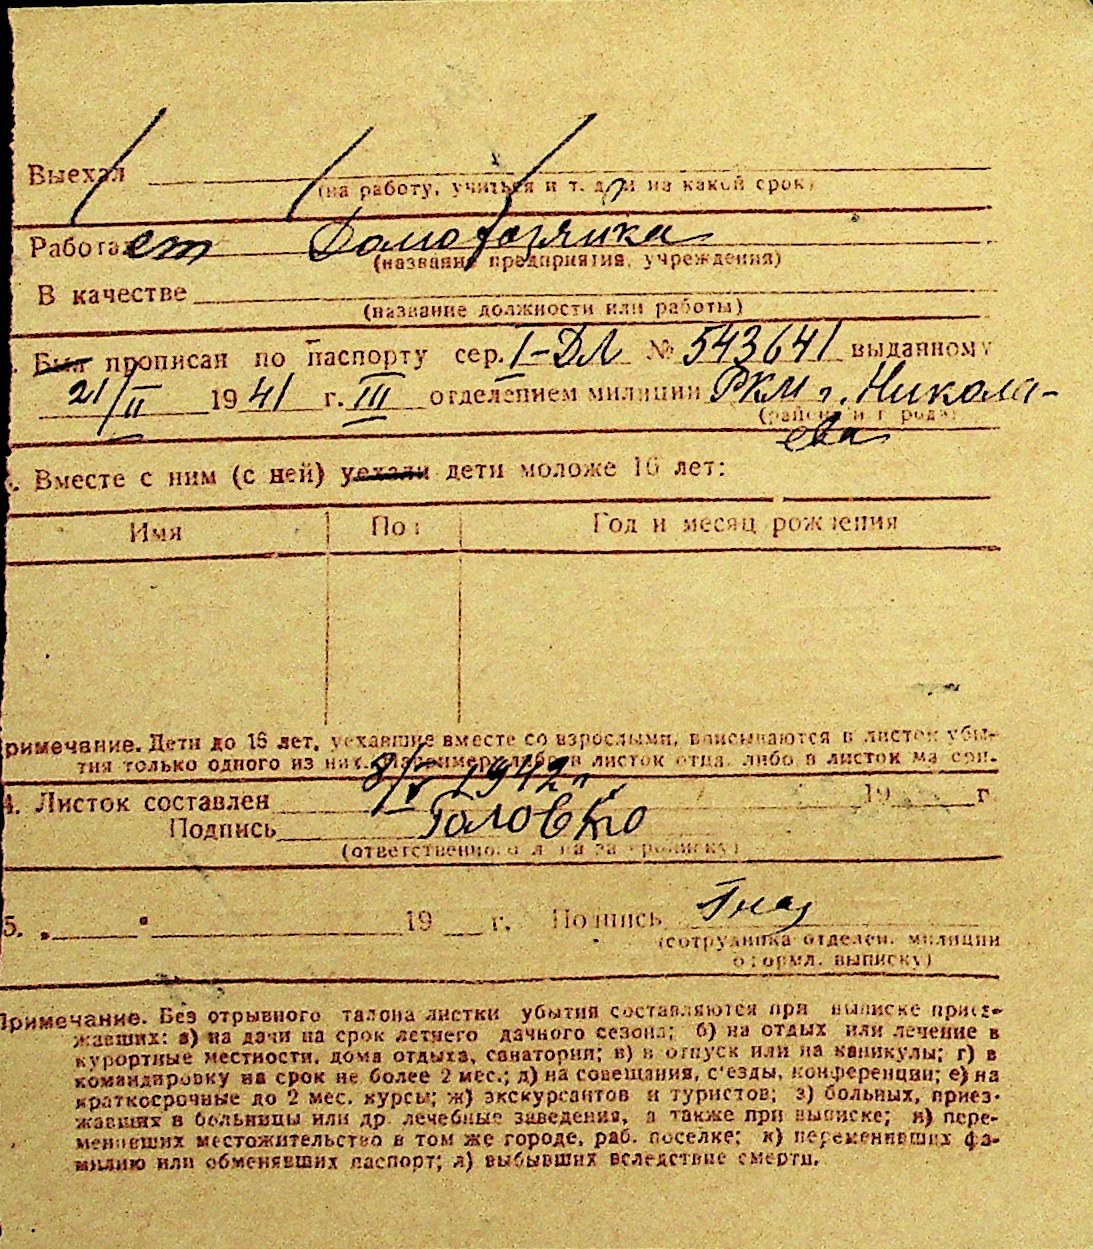 Выехал
(на работу, учиться и т. д. и на какой срок)
Работает Домохозяйка
(название предприятия, учреждения)
В качестве
(название должности или работы)
. Был прописан по паспорту сер. I-ДЛ № 543641 выданному
21/II 1941 г. III отделением милиции РКМ г. Никола-
(район и город)
ева
. Вместе с ним (с ней) уехали дети моложе 16 лет:
Имя Пол Год и месяц рождения
римечание. Дети до 16 лет, уехавшие вместе со взрослыми, вписываются в листок убы-
тия только одного из них. Например: либо в листок отца, либо в листок матери.
4. Листок составлен 8/V 1942 г. 19 г
Подпись Головко
(ответственного лица за прописку)
5. „ " 19 г. Подпись
(сотрудника отделен. милиции
оформл. выписку)
Примечание. Без отрывного талона листки убытия составляются при выписке приез-
жавших: а) на дачи на срок летнего дачного сезона; б) на отдых или лечение в
курортные местности, дома отдыха, санатории; в) в отпуск или на каникулы; г) в
командировку на срок не более 2 мес.; д) на совещания, с'езды, конференции; е) на
краткосрочные до 2 мес. курсы; ж) экскурсантов и туристов; з) больных, приез-
жавших в больницы или др. лечебные заведения, а также при выписке; и) пере-
менивших местожительство в том же городе, раб. поселке; к) переменивших фа-
милию или обменявших паспорт; л) выбывших вследствие смерти.